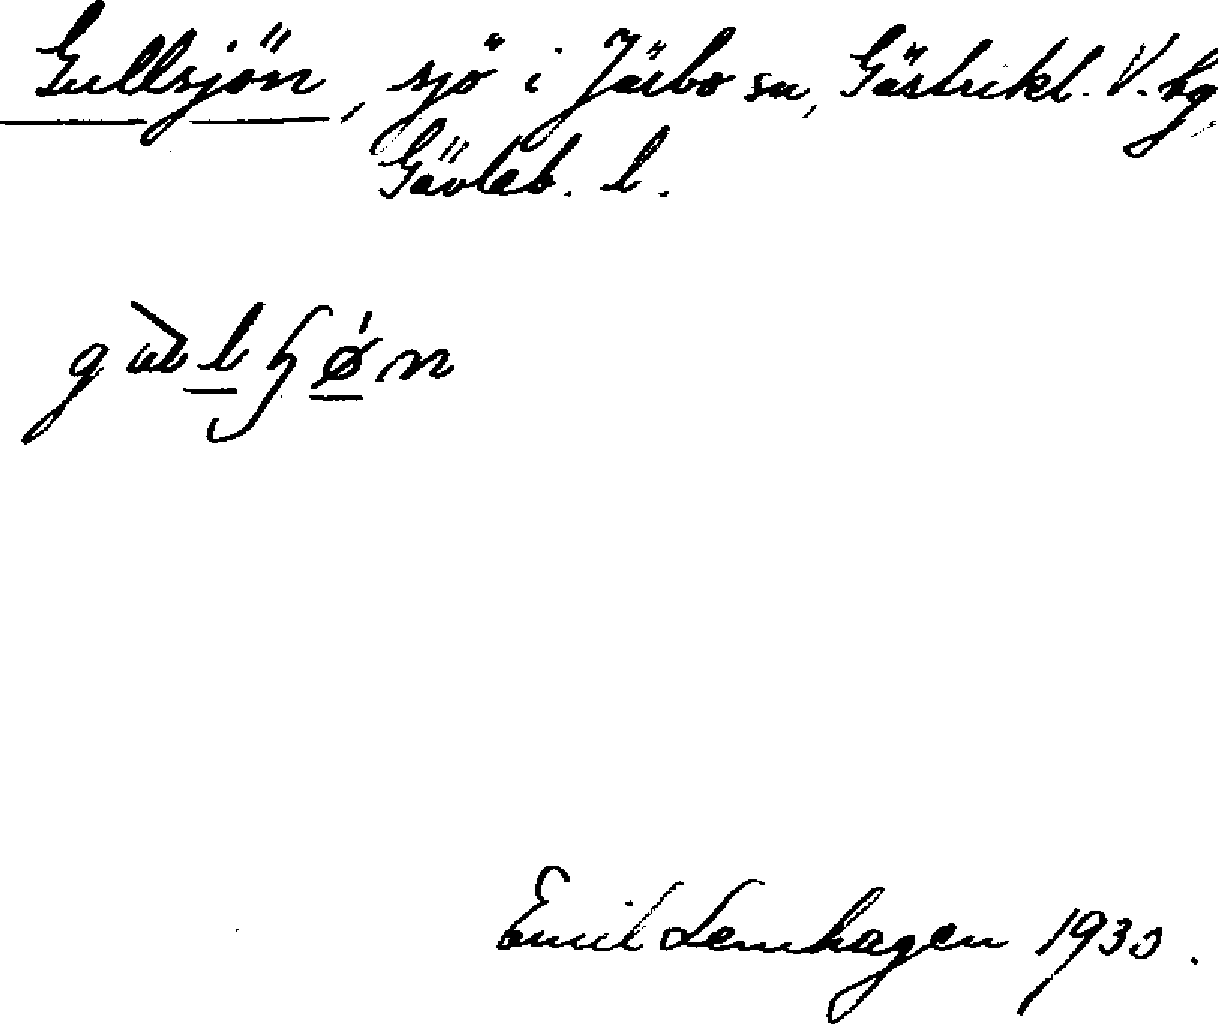 Gullsjön, sjö i Järbo sn, Gästrikl. V. tg,
Gävleb. l.
Emil Lenhagen 1930.